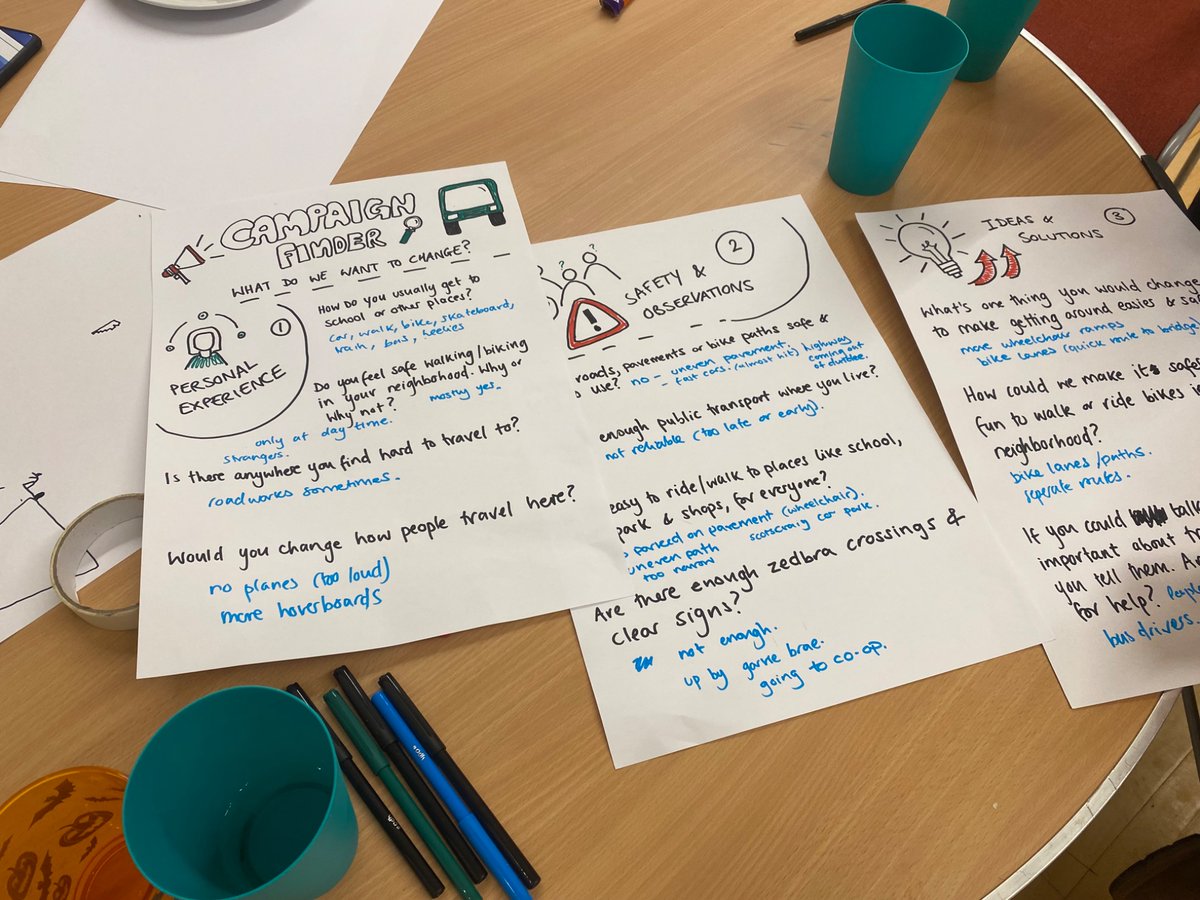 CAMPAIGN
FINDER
WHAT DO WE WANT TO CHANGE?
1
PERSONAL
EXPERIENCE
How do you usually get to
school or other places?
car, walk, bike, skateboard,
train, bus, heelies
Do you feel safe walking/biking
in your neighborhood. Why or
Why not?
mostly yes.
only at day time.
strangers.
Is there anywhere you find hard to travel to?
roadworks sometimes.
Would you change how people travel here?
no planes (too loud)
more hoverboards
2
SAFETY &
OBSERVATIONS
roads, pavements or bike paths safe &
use? no - uneven pavement, highways
- fast cars. (almost hit) coming out
of dundee.
enough public transport where you live?
not reliable (too late or early).
easy to ride/walk to places like school,
park & shops, for everyone?
parked on pavement (wheelchair).
uneven path scotscraig car park.
too narrow
Are there enough zedbra crossings &
clear signs?
not enough.
up by gorrie brae.
going to co-op.
3
IDEAS &
SOLUTIONS
What's one thing you would change
to make getting around easies &
more wheelchair ramps
bike lanes (quick route to bridge)
How could we make it safe
fun to walk or ride bikes
neighborhood?
bike lanes/paths.
seperate routes.
If you could talk
important about
you tell them.
for help?
bus drivers.